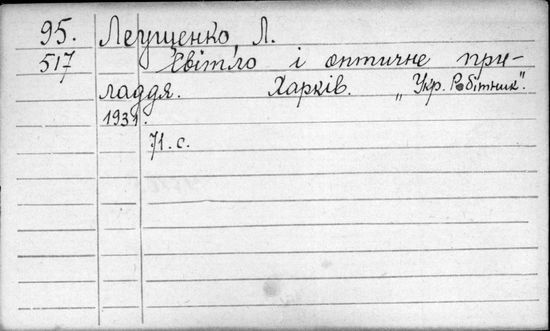 95. Леущенко, Л.
517 Світло і оптичне при-
ладдя. Харків. „Укр. Робітник".
1931.
71. с.